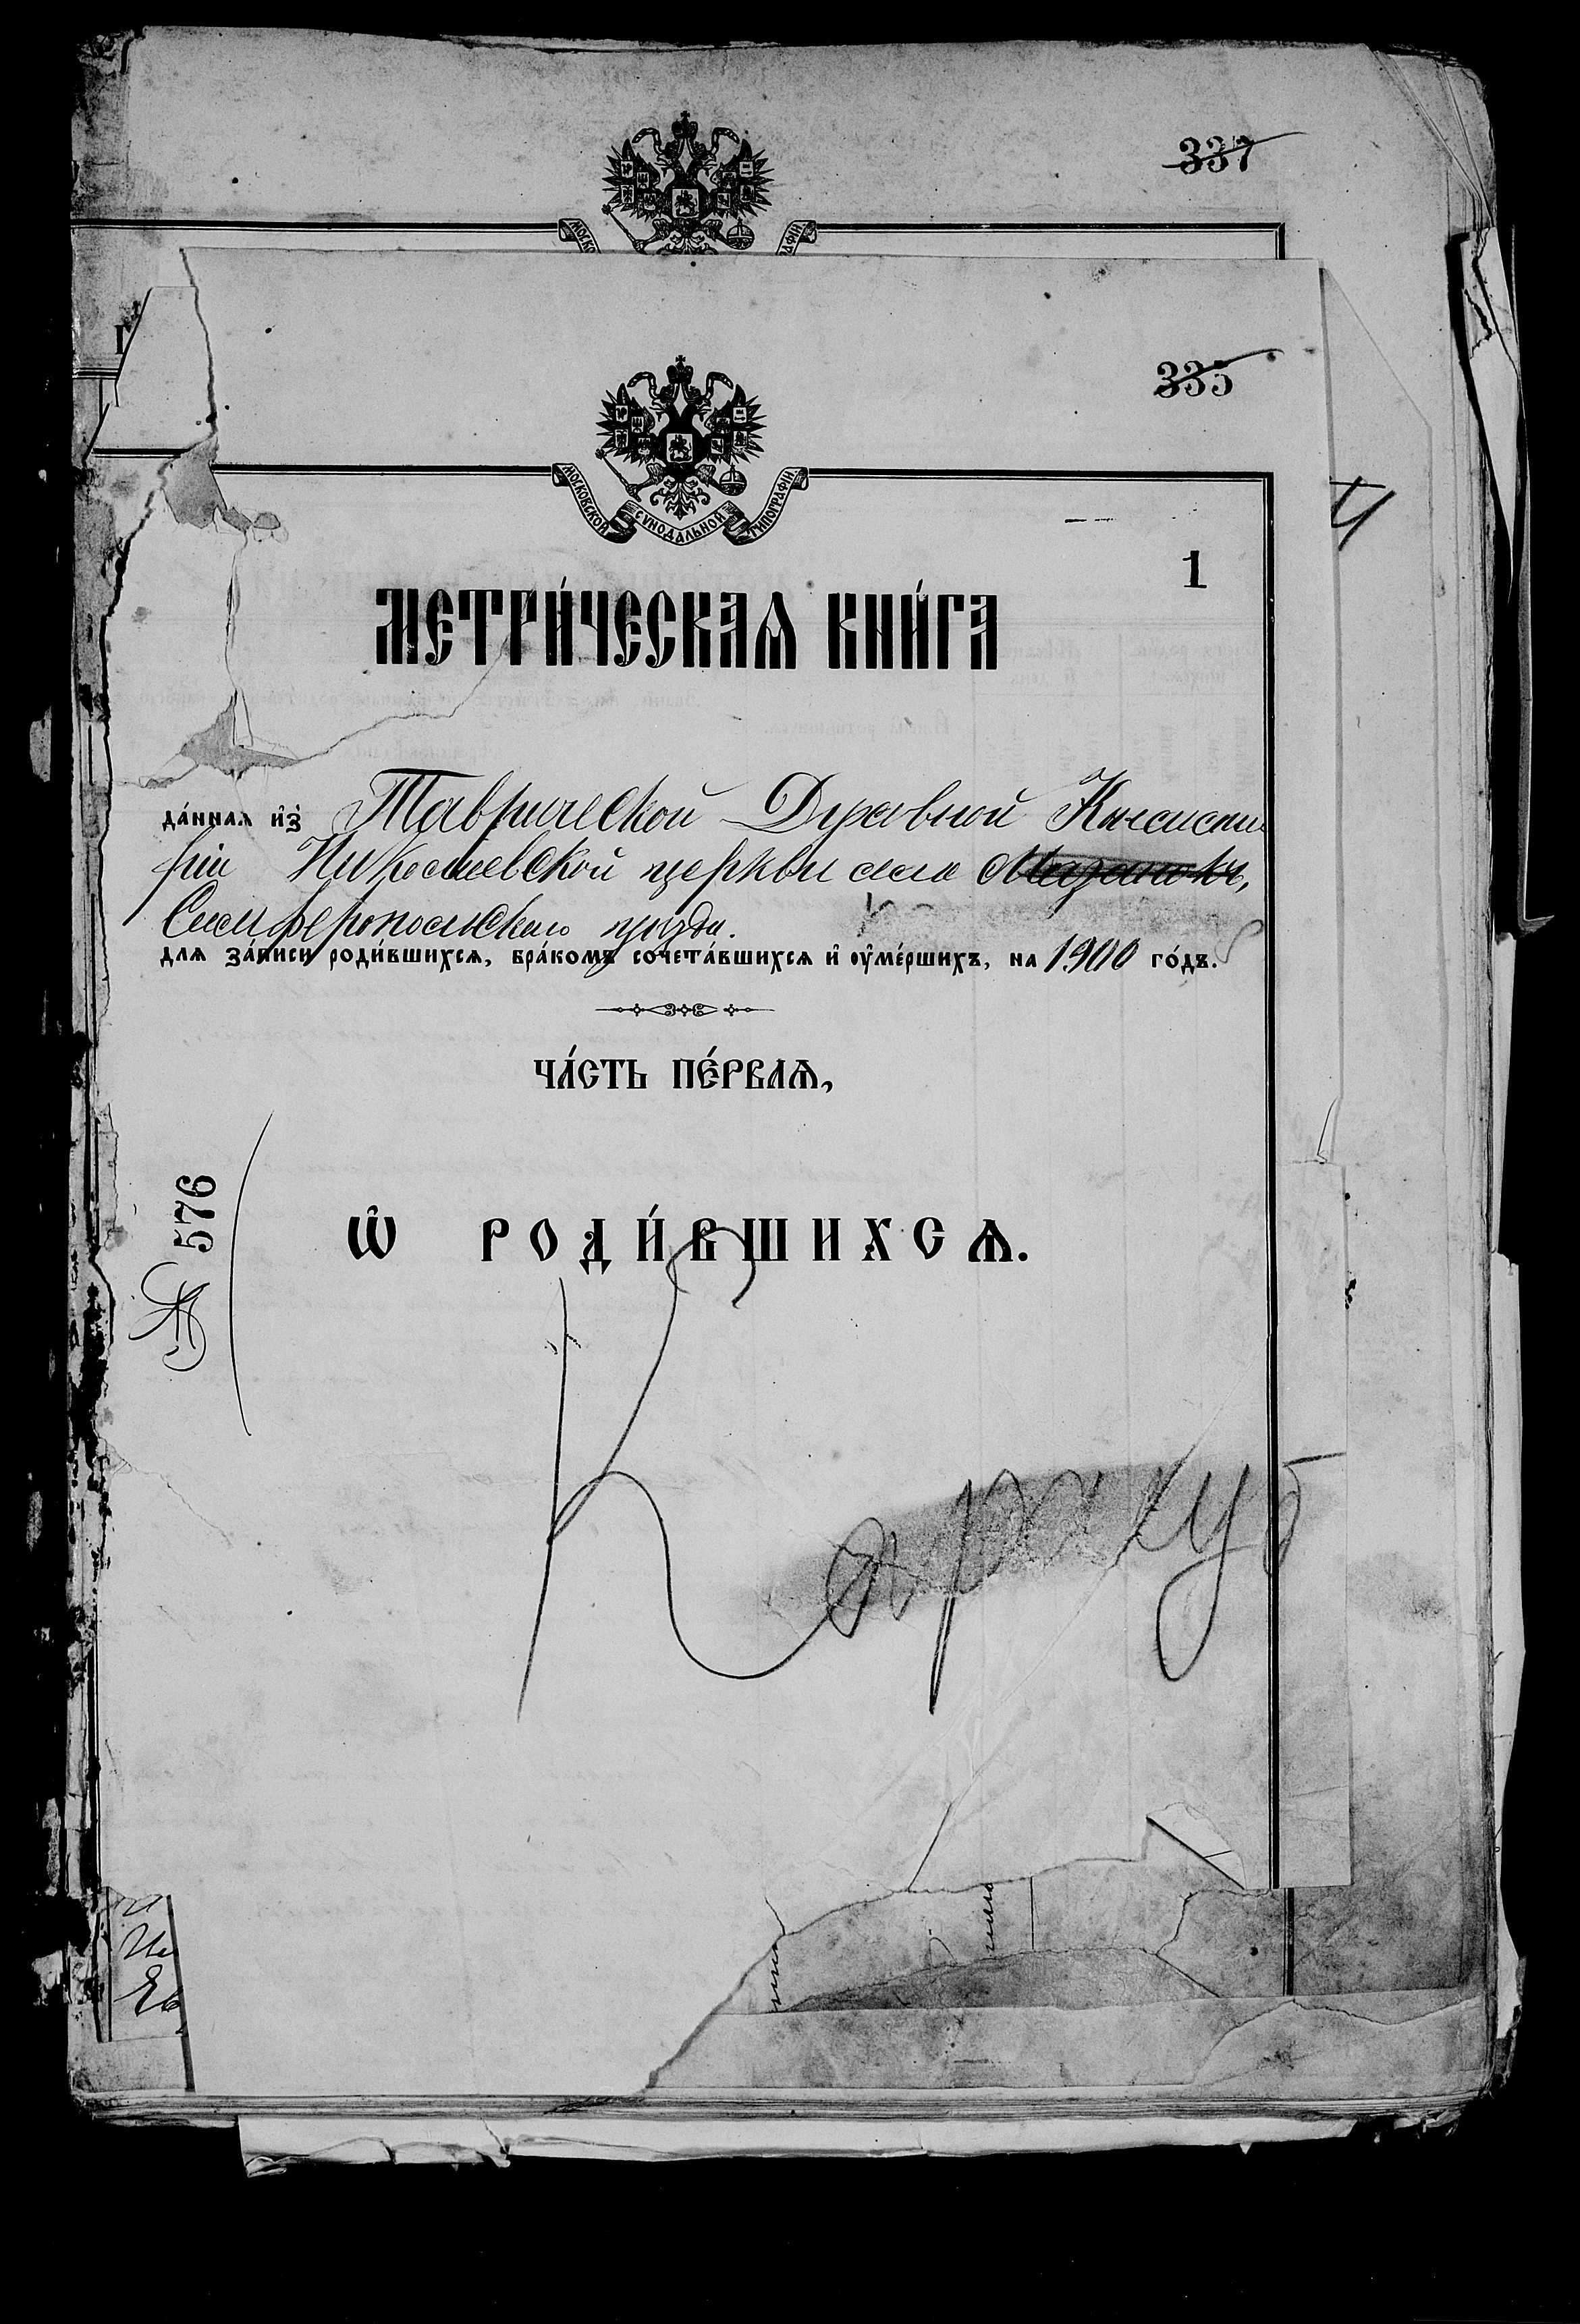 337
335
МОСКОВСКОЙ СѴНОДАЛЬНОЙ ТИПОГРАФІИ
1
МЕТРИ́ЧЕСКАѦ КНИ́ГА
да́ннаѧ и҆з̾ Таврической Духовной Консисто
ріи Николаевской церкви села Мазанкъ,
Симферопольскаго уѣзда.
длѧ за́писи роди́вшихсѧ, бра́комъ сочета́вшихсѧ и҆ ᲂу҆ме́ршихъ, на 1900 го́дъ.
ЧА́СТЬ ПЕ́РВАѦ,
Ѡ҆ РОДИ́ВШИХСѦ.
576
Каракуб